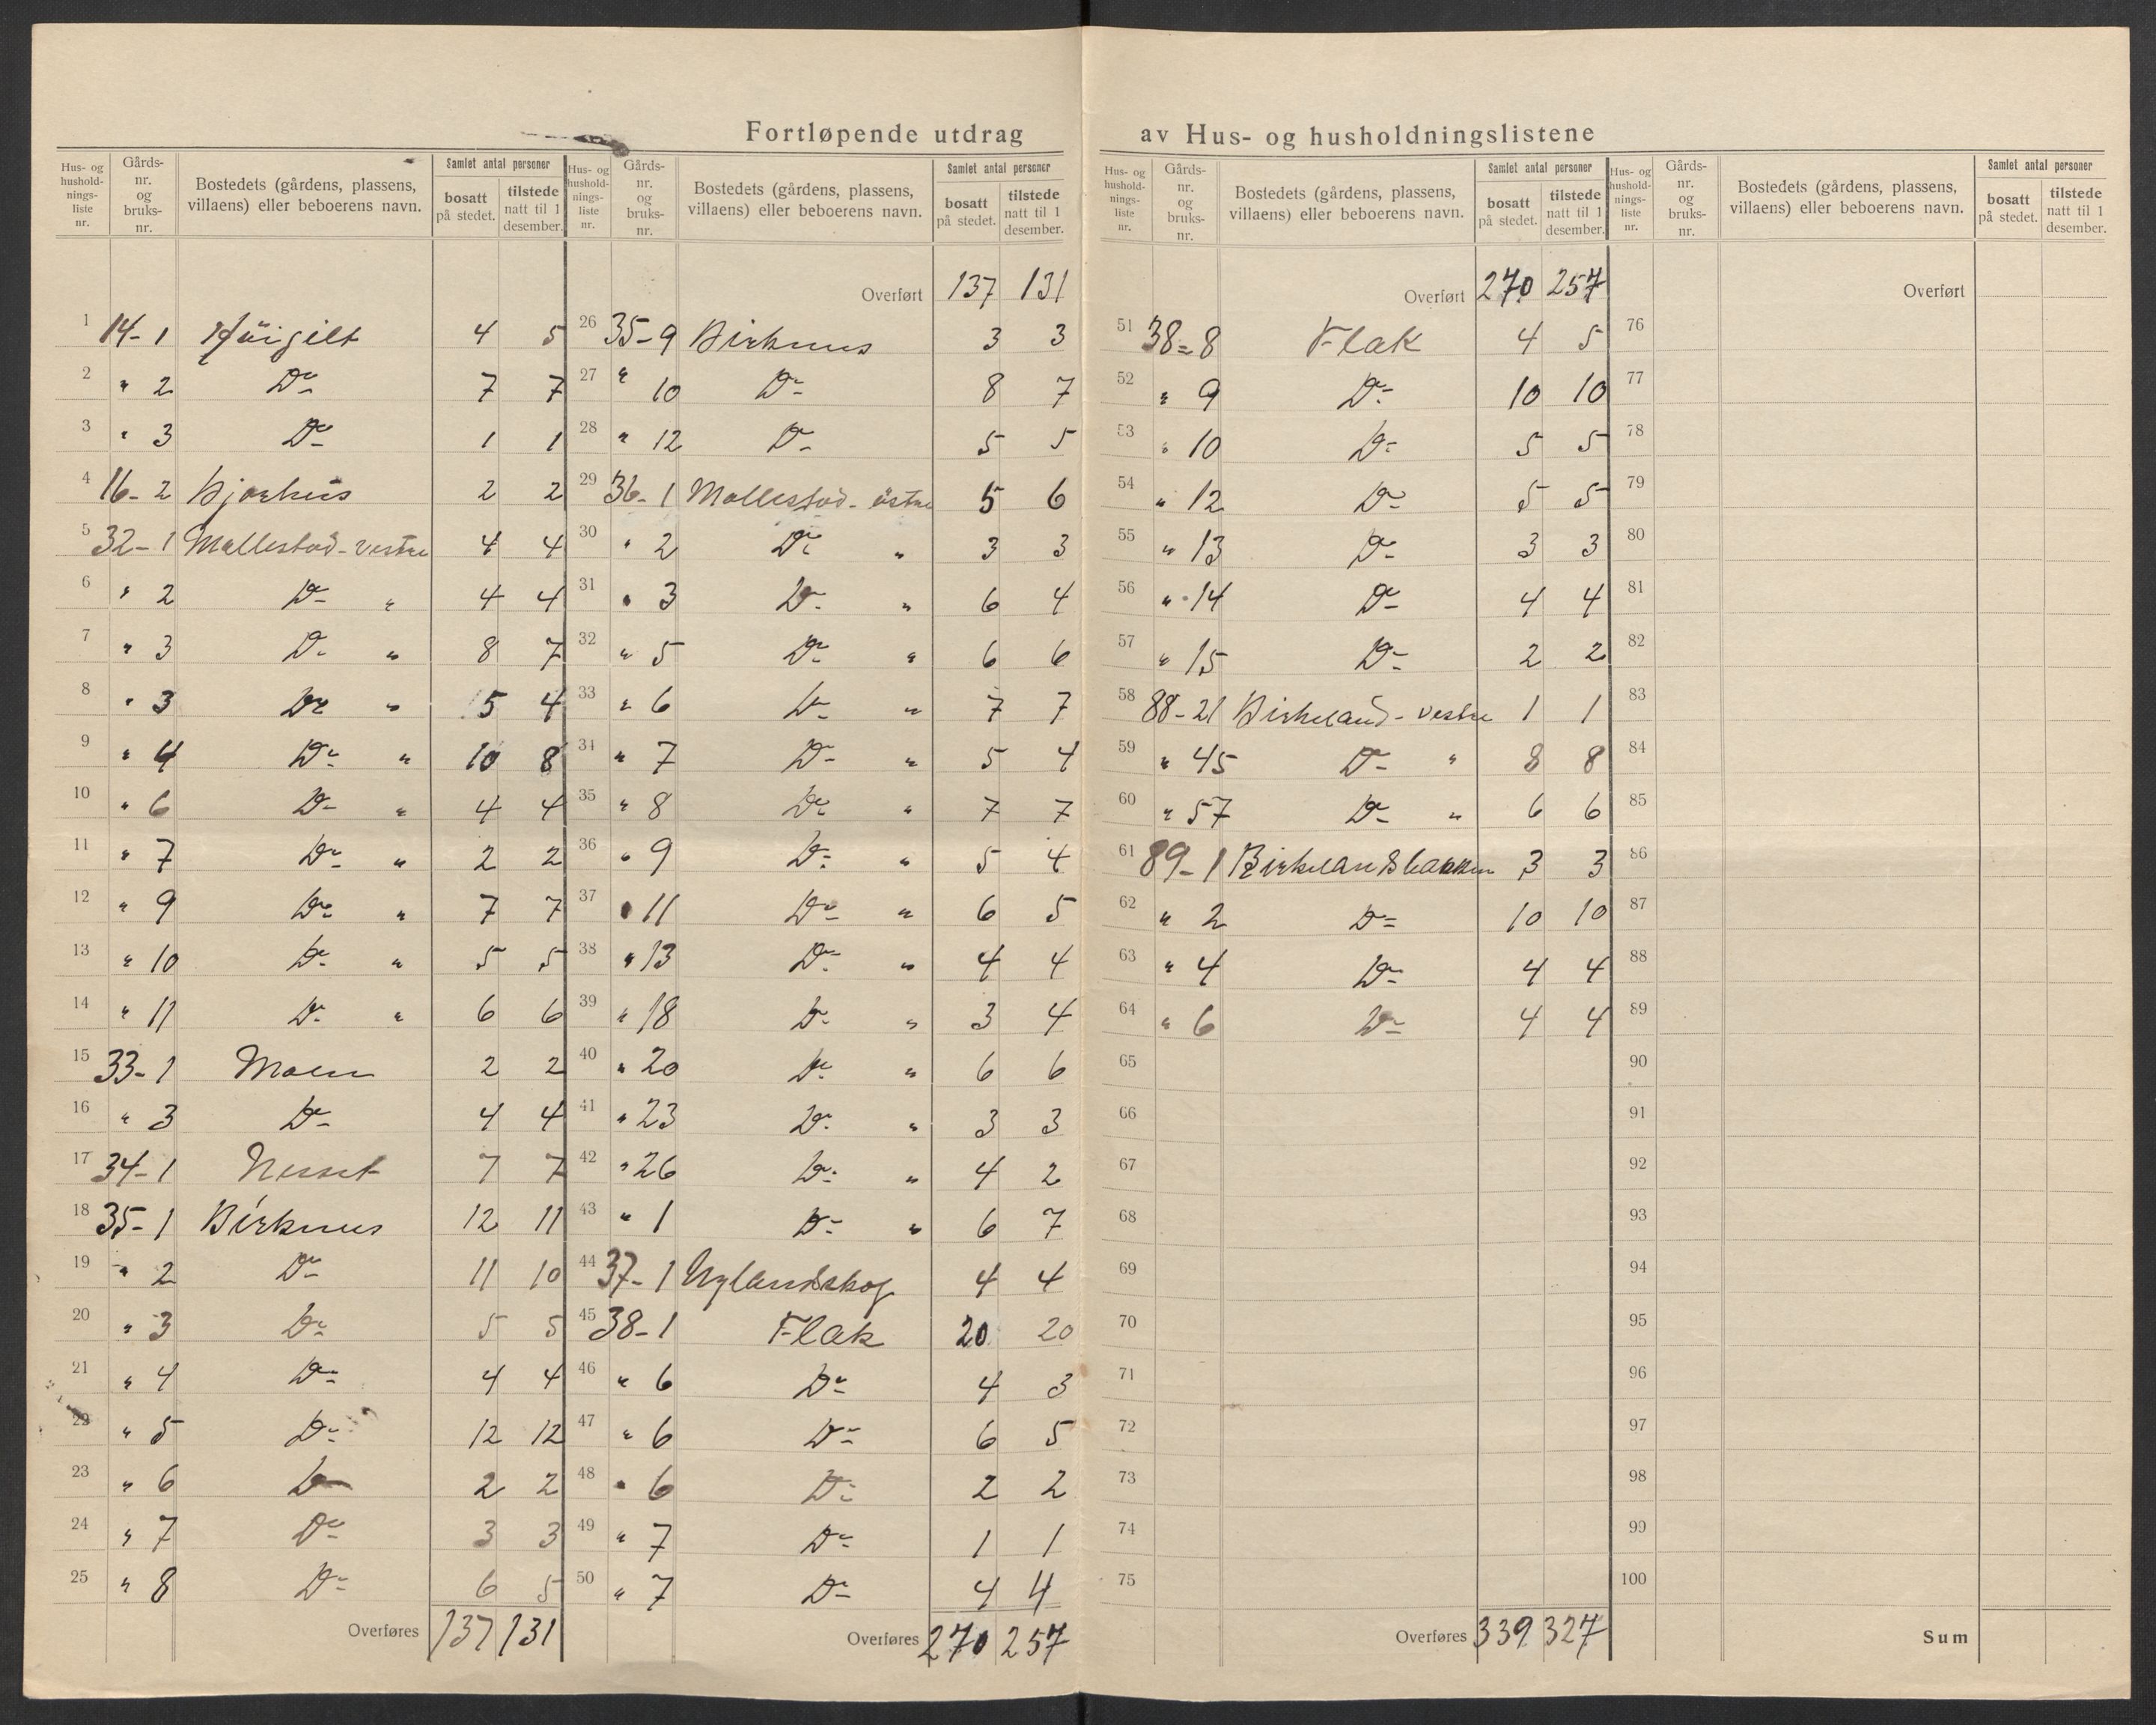 Fortløpende utdrag av Hus- og husholdningslistene
Hus- og hushold-nings-liste nr. | Gårds-nr. og bruks-nr. | Bostedets (gårdens, plassens, villaens) eller beboerens navn. | Samlet antal personer | bosatt på stedet. | tilstede natt til 1 desember.
1 14-1 Höigilt 4 5
2 " 2 Do 7 7
3 " 3 Do 1 1
4 16-2 Bjorhus 2 2
5 32-1 Mollestad-vestre 4 4
6 " 2 Do " 4 4
7 " 3 Do " 8 7
8 " 3 Do " 5 4
9 " 4 Do " 10 8
10 " 6 Do " 4 4
11 " 7 Do " 2 2
12 " 9 Do " 7 7
13 " 10 Do " 5 5
14 " 11 Do " 6 6
15 33-1 Moen 2 2
16 " 3 Do 4 4
17 34-1 Nesset 7 7
18 35-1 Birknus 12 11
19 " 2 Do 11 10
20 " 3 Do 5 5
21 " 4 Do 4 4
22 " 5 Do 12 12
23 " 6 Do 2 2
24 " 7 Do 3 3
25 " 8 Do 6 5
Overføres 137 131
Hus- og hushold-nings-liste nr. | Gårds-nr. og bruks-nr. | Bostedets (gårdens, plassens, villaens) eller beboerens navn. | Samlet antal personer | bosatt på stedet. | tilstede natt til 1 desember.
Overført 137 131
26 35-9 Birknus 3 3
27 " 10 Do 8 7
28 " 12 Do 5 5
29 36-1 Mollestad-östre 5 6
30 " 2 Do " 3 3
31 " 3 Do " 6 4
32 " 5 Do " 6 6
33 " 6 Do " 7 7
34 " 7 Do " 5 4
35 " 8 Do " 7 7
36 " 9 Do " 5 4
37 " 11 Do " 6 5
38 " 13 Do " 4 4
39 " 18 Do " 3 4
40 " 20 Do " 6 6
41 " 23 Do " 3 3
42 " 26 Do " 4 2
43 " 1 Do " 6 7
44 37-1 Nylandskog 4 4
45 38-1 Flak 20 20
46 " 6 Do 4 3
47 " 6 Do 6 5
48 " 6 Do 2 2
49 " 7 Do 1 1
50 " 7 Do 4 4
Overføres 270 257
Hus- og hushold-nings-liste nr. | Gårds-nr. og bruks-nr. | Bostedets (gårdens, plassens, villaens) eller beboerens navn. | Samlet antal personer | bosatt på stedet. | tilstede natt til 1 desember.
Overført 270 257
51 38=8 Flak 4 5
52 " 9 Do 10 10
53 " 10 Do 5 5
54 " 12 Do 5 5
55 " 13 Do 3 3
56 " 14 Do 4 4
57 " 15 Do 2 2
58 88-21 Birkeland-vestre 1 1
59 " 45 Do " 8 8
60 " 57 Do " 6 6
61 89-1 Birkelandsbakken 3 3
62 " 2 Do 10 10
63 " 4 Do 4 4
64 " 6 Do 4 4
65
66
67
68
69
70
71
72
73
74
75
Overføres 339 327
Hus- og hushold-nings-liste nr. | Gårds-nr. og bruks-nr. | Bostedets (gårdens, plassens, villaens) eller beboerens navn. | Samlet antal personer | bosatt på stedet. | tilstede natt til 1 desember.
Overført
76
77
78
79
80
81
82
83
84
85
86
87
88
89
90
91
92
93
94
95
96
97
98
99
100
Sum